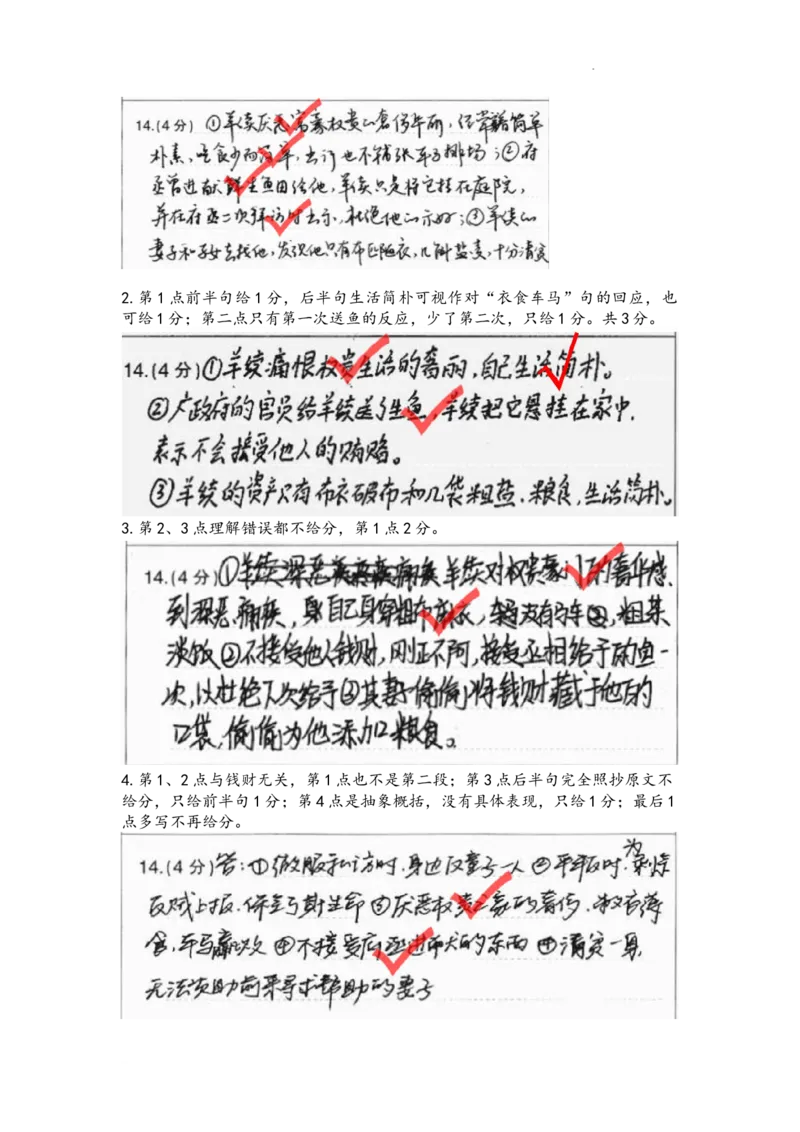 14.(4分) ①羊续厌恶富豪权贵的奢侈华丽，经常着简单
朴素，吃食少而简单，出行也不铺张车马排场；②府
丞曾进献鲜生鱼回给他，羊续只是将它挂在庭院，
并在府丞二次拜访时出示，杜绝他的示好；③羊续的
妻子和子女去找他，发现他只有布匹陋衣，几斛盐麦，十分清贫
2.第1点前半句给1分，后半句生活简朴可视作对“衣食车马”句的回应，也
可给1分；第二点只有第一次送鱼的反应，少了第二次，只给1分。共3分。
14.(4分)①羊续痛恨权贵生活的奢丽，自己生活简朴。
②广政府的官员给羊续送了生鱼，羊续把它悬挂在家中，
表示不会接受他人的贿赂。
③羊续的资产只有布衣破布和几袋粗盐、粮食，生活简朴。
3.第2、3点理解错误都不给分，第1点2分。
14.(4分)①羊续对权贵豪门的奢华感
到深恶痛疾，自己身穿粗布麻衣，车马，粗茶
淡饭②不接受他人钱财，刚正不阿，接受丞相给予的鱼一
次，以杜绝下次给予③其妻子偷偷将钱财藏于他的
口袋，偷偷为他添加粮食。
4.第1、2点与钱财无关，第1点也不是第二段；第3点后半句完全照抄原文不
给分，只给前半句1分；第4点是抽象概括，没有具体表现，只给1分；最后1
点多写不再给分。
14.(4分)答：①微服私访时，身边仅童子一人②平叛时，为剩余
反贼上报，保全其生命③厌恶权贵之豪的奢侈，敝衣薄
食，车马羸败④不接受府丞进献的东西⑤清贫一身，
无法资助前来寻求帮助的妻子